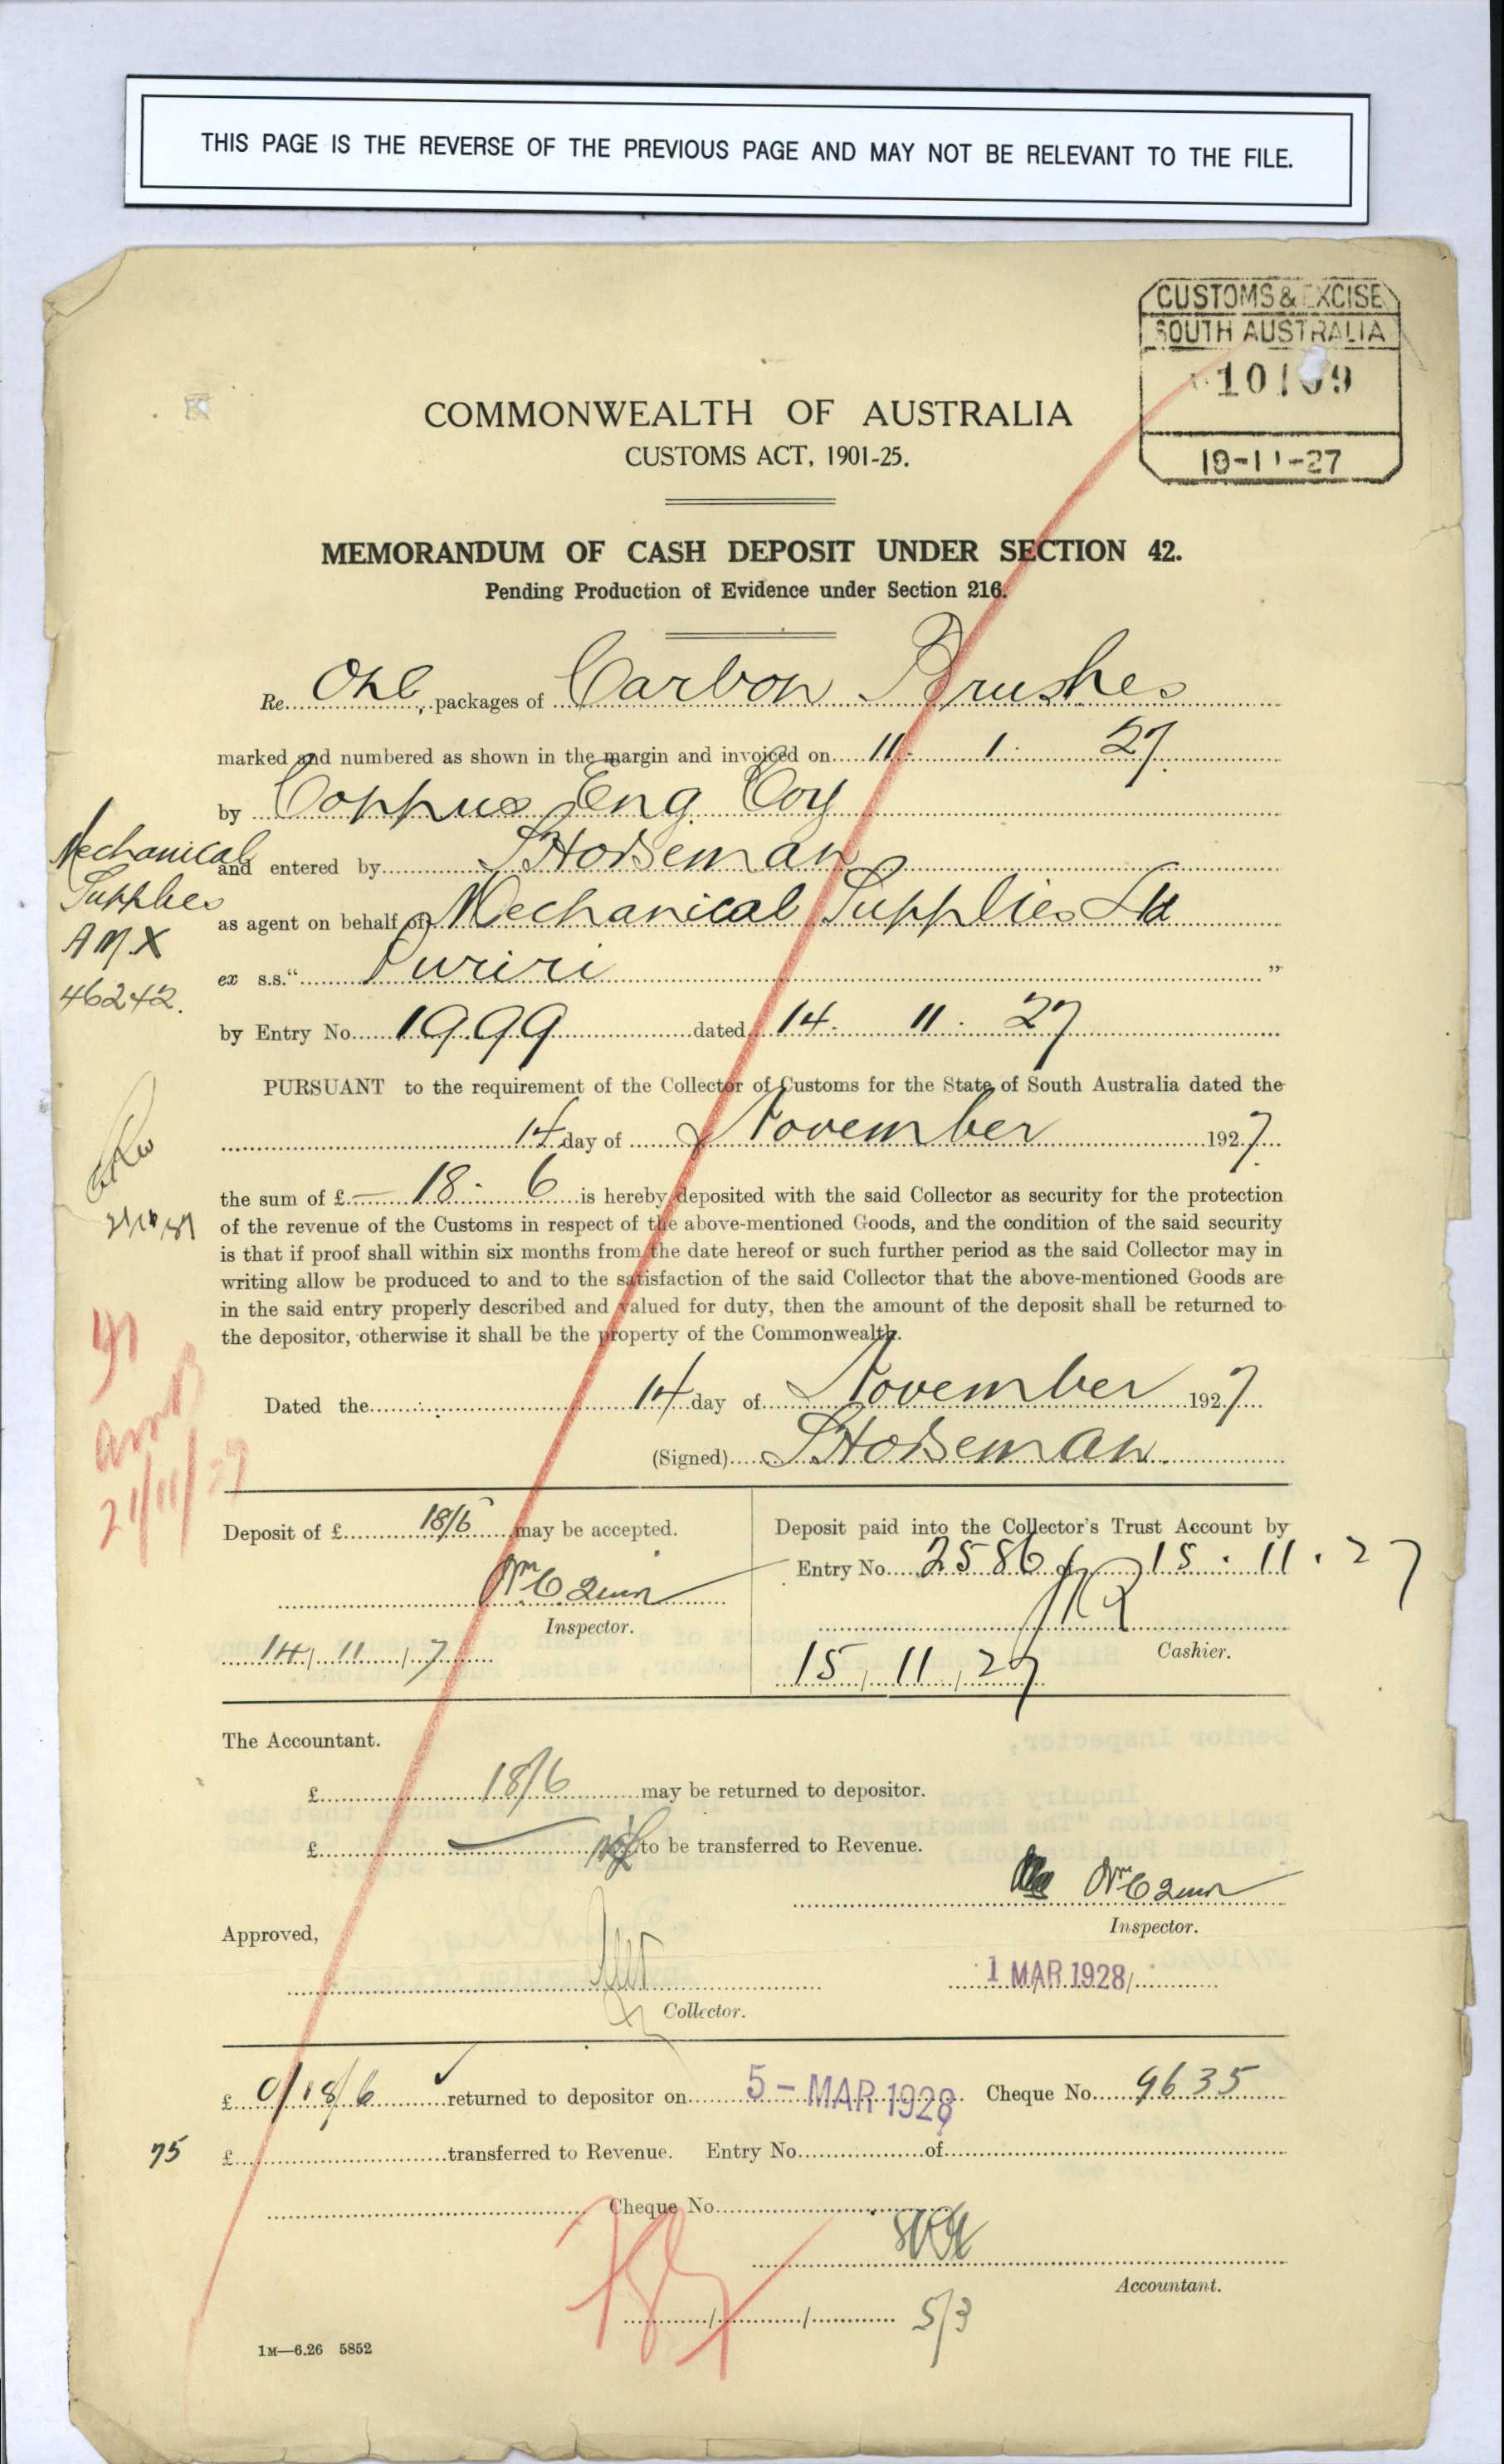 THIS PAGE IS THE REVERSE OF THE PREVIOUS PAGE AND MAY NOT BE RELEVANT TO THE FILE.
CUSTOMS & EXCISE
SOUTH AUSTRALIA
19-11-27
COMMONWEALTH OF AUSTRALIA
CUSTOMS ACT, 1901-25.
MEMORANDUM OF CASH DEPOSIT UNDER SECTION 42.
Pending Production of Evidence under Section 216.
Re One packages of Carbon Brushes
marked and numbered as shown in the margin and invoiced on 11. 1. 27.
by Coppus Eng. Coy
Mechanical
and entered by S Horseman
Supplies
as agent on behalf of Mechanical Supplies Ltd
A M X
ex s.s. " Puriri "
46242.
by Entry No. 1999 dated 14. 11. 27
PURSUANT to the requirement of the Collector of Customs for the State of South Australia dated the
14 day of November 1927.
the sum of £ — 18 - 6 is hereby deposited with the said Collector as security for the protection
of the revenue of the Customs in respect of the above-mentioned Goods, and the condition of the said security
is that if proof shall within six months from the date hereof or such further period as the said Collector may in
writing allow be produced to and to the satisfaction of the said Collector that the above-mentioned Goods are
in the said entry properly described and valued for duty, then the amount of the deposit shall be returned to
the depositor, otherwise it shall be the property of the Commonwealth.
Dated the 14 day of November 1927
(Signed) S Horseman.
21/11/27
Deposit of £ 18/6 may be accepted.
Inspector.
14/11/7
Deposit paid into the Collector's Trust Account by
Entry No. 2586 of 15.11.27
Cashier.
15/11/27
The Accountant.
£ 18/6 may be returned to depositor.
£ — to be transferred to Revenue.
Inspector.
Approved,
1 MAR 1928
Collector.
£ 0/18/6 returned to depositor on 5 - MAR 1928 Cheque No. 9635
75 £ transferred to Revenue. Entry No. of
Cheque No.
Accountant.
5/3
1M—6.26 5852